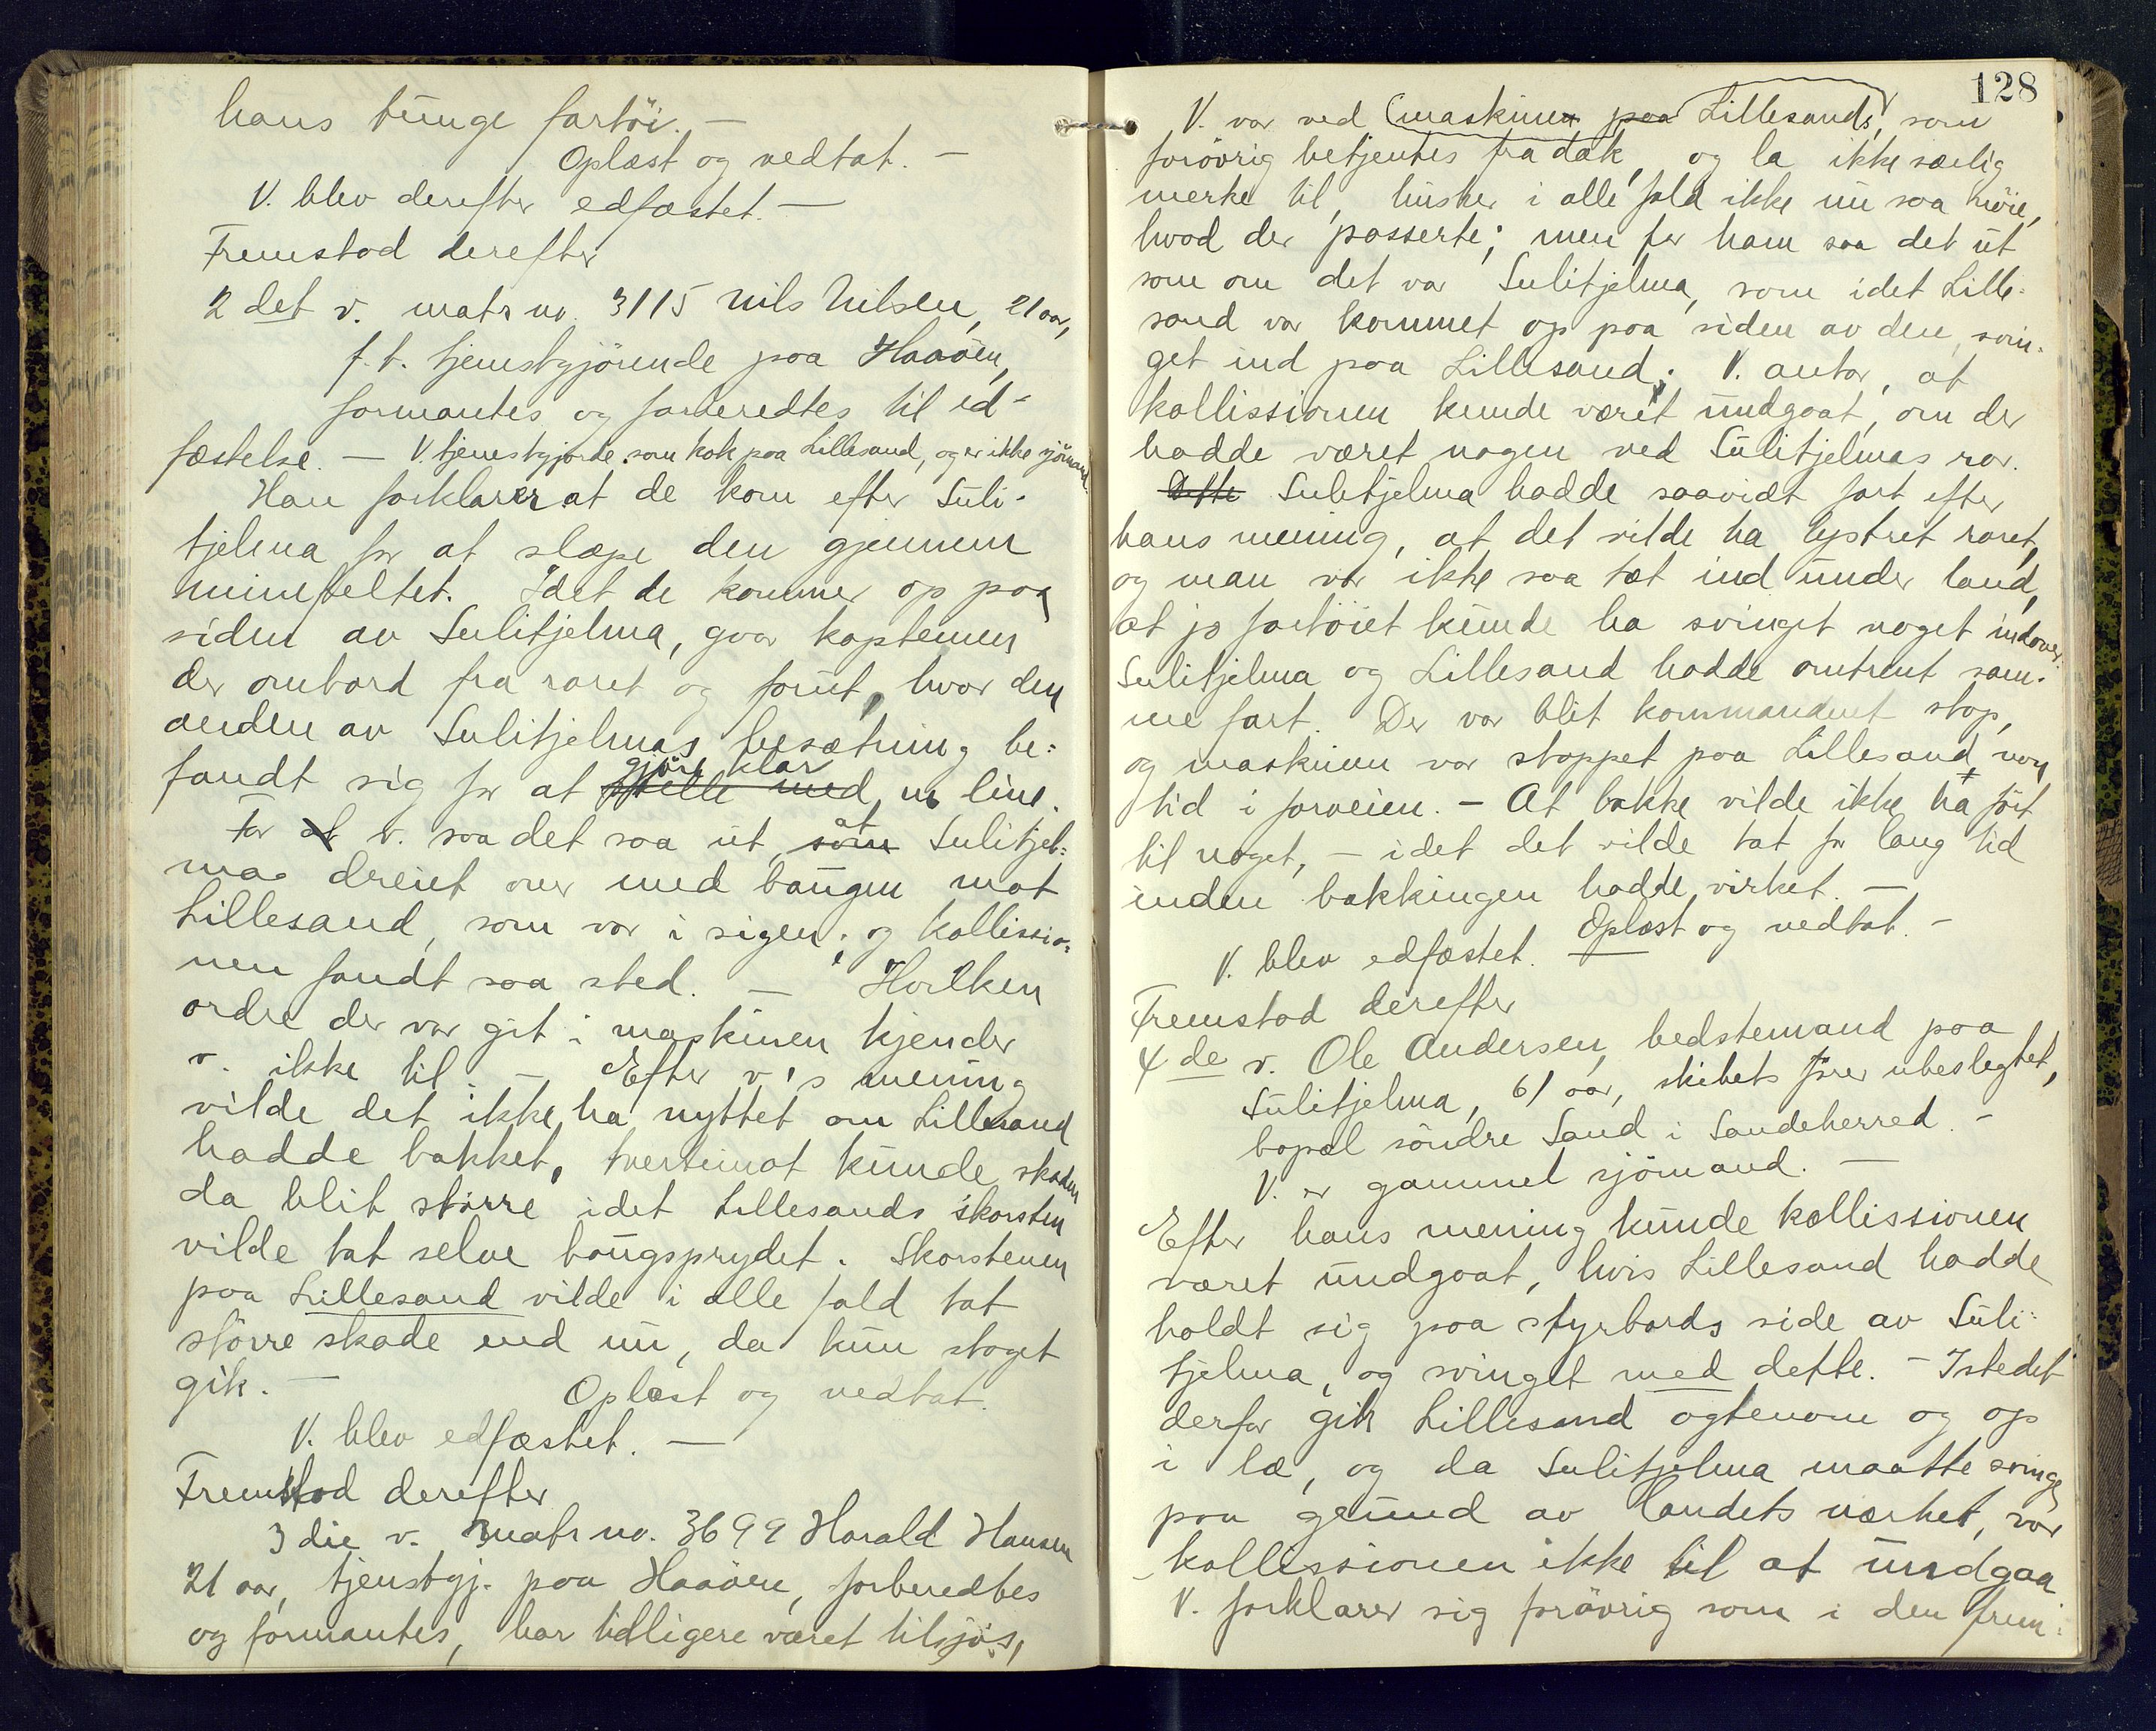 hans tunge fartöi. —
Oplæst og vedtat. —
V. blev derefter edfæstet. —
Fremstod derefter
2 det v. matr no. 3115 Nils Nilsen, 21 aar,
f. t. tjenstgjörende paa Haaöen,
formantes og forberedtes til ed-
fæstelse. — V. tjenestgjorde som kok paa Lillesand, og er ikke sjömand.
Han forklarer at de kom efter Suli-
tjelma for at slæpe den gjennem
minefeltet. Idet de kommer op paa
siden av Sulitjelma, gaar kapteinen
der ombord fra roret og forut, hvor den
anden av Sulitjelmas besætning be-
fandt sig for at gjöre klar en line.
For v. saa det saa ut, at Sulitjel-
ma dreiet over med baugen mot
Lillesand, som var i sigen; og kollissio-
nen fandt saa sted. — Hvilken
ordre der var git i maskinen kjender
v. ikke til. — Efter v's mening
vilde det ikke ha nyttet om Lillesand
hadde bakket, tvertimot kunde skaden
da blit större idet Lillesands skorsten
vilde tat selve baugsprydet. Skorstenen
paa Lillesand vilde i alle fald tat
större skade end nu, da kun staget
gik. —
Oplæst og vedtat.
V. blev edfæstet. —
Fremstod derefter
3 die v. matr no. 3699 Harald Hansen
21 aar, tjenstgj. paa Haaöen, forberedtes
og formantes, har tidligere været tilsjös,
128
V. var ved maskinen paa Lillesands, som
forövrig betjentes fra dæk, og la ikke særlig
merke til, husker i alle fald ikke nu saa nöie,
hvad der passerte; men for ham saa det ut
som om det var Sulitjelma, som idet Lille-
sand var kommet op paa siden av den, svin-
get ind paa Lillesand; V. antar, at
kollissionen kunde været undgaat, om der
hadde været nogen ved Sulitjelmas ror.
Dette Sulitjelma hadde saavidt fart efter
hans mening, at det vilde ha lystret roret,
og man var ikke saa tæt ind under land,
at jo fartöiet kunde ha svinget noget indover.
Sulitjelma og Lillesand hadde omtrent sam-
me fart. Der var blit kommandert stop,
og maskinen var stoppet paa Lillesand, non
tid i forveien. — At bakke vilde ikke ha fört
til noget, — idet det vilde tat for lang tid
inden bakkingen hadde virket. —
Oplæst og vedtat. —
V. blev edfæstet. —
Fremstod derefter
4 de v. Ole Andersen, bedstemand paa
Sulitjelma, 61 aar, skibets förer ubeslegtet,
bopæl söndre Sand i Sandeherred. —
V. er gammel sjömand. —
Efter hans mening kunde kollissionen
været undgaat, hvis Lillesand hadde
holdt sig paa styrbords side av Suli-
tjelma, og svinget med dette. — Istedet
derfor gik Lillesand agtenom og op
i læ, og da Sulitjelma maatte svinge
paa grund av landets nærhet, var
kollissionen ikke til at undgaa
V. forklarer sig forövrig som i den frem-